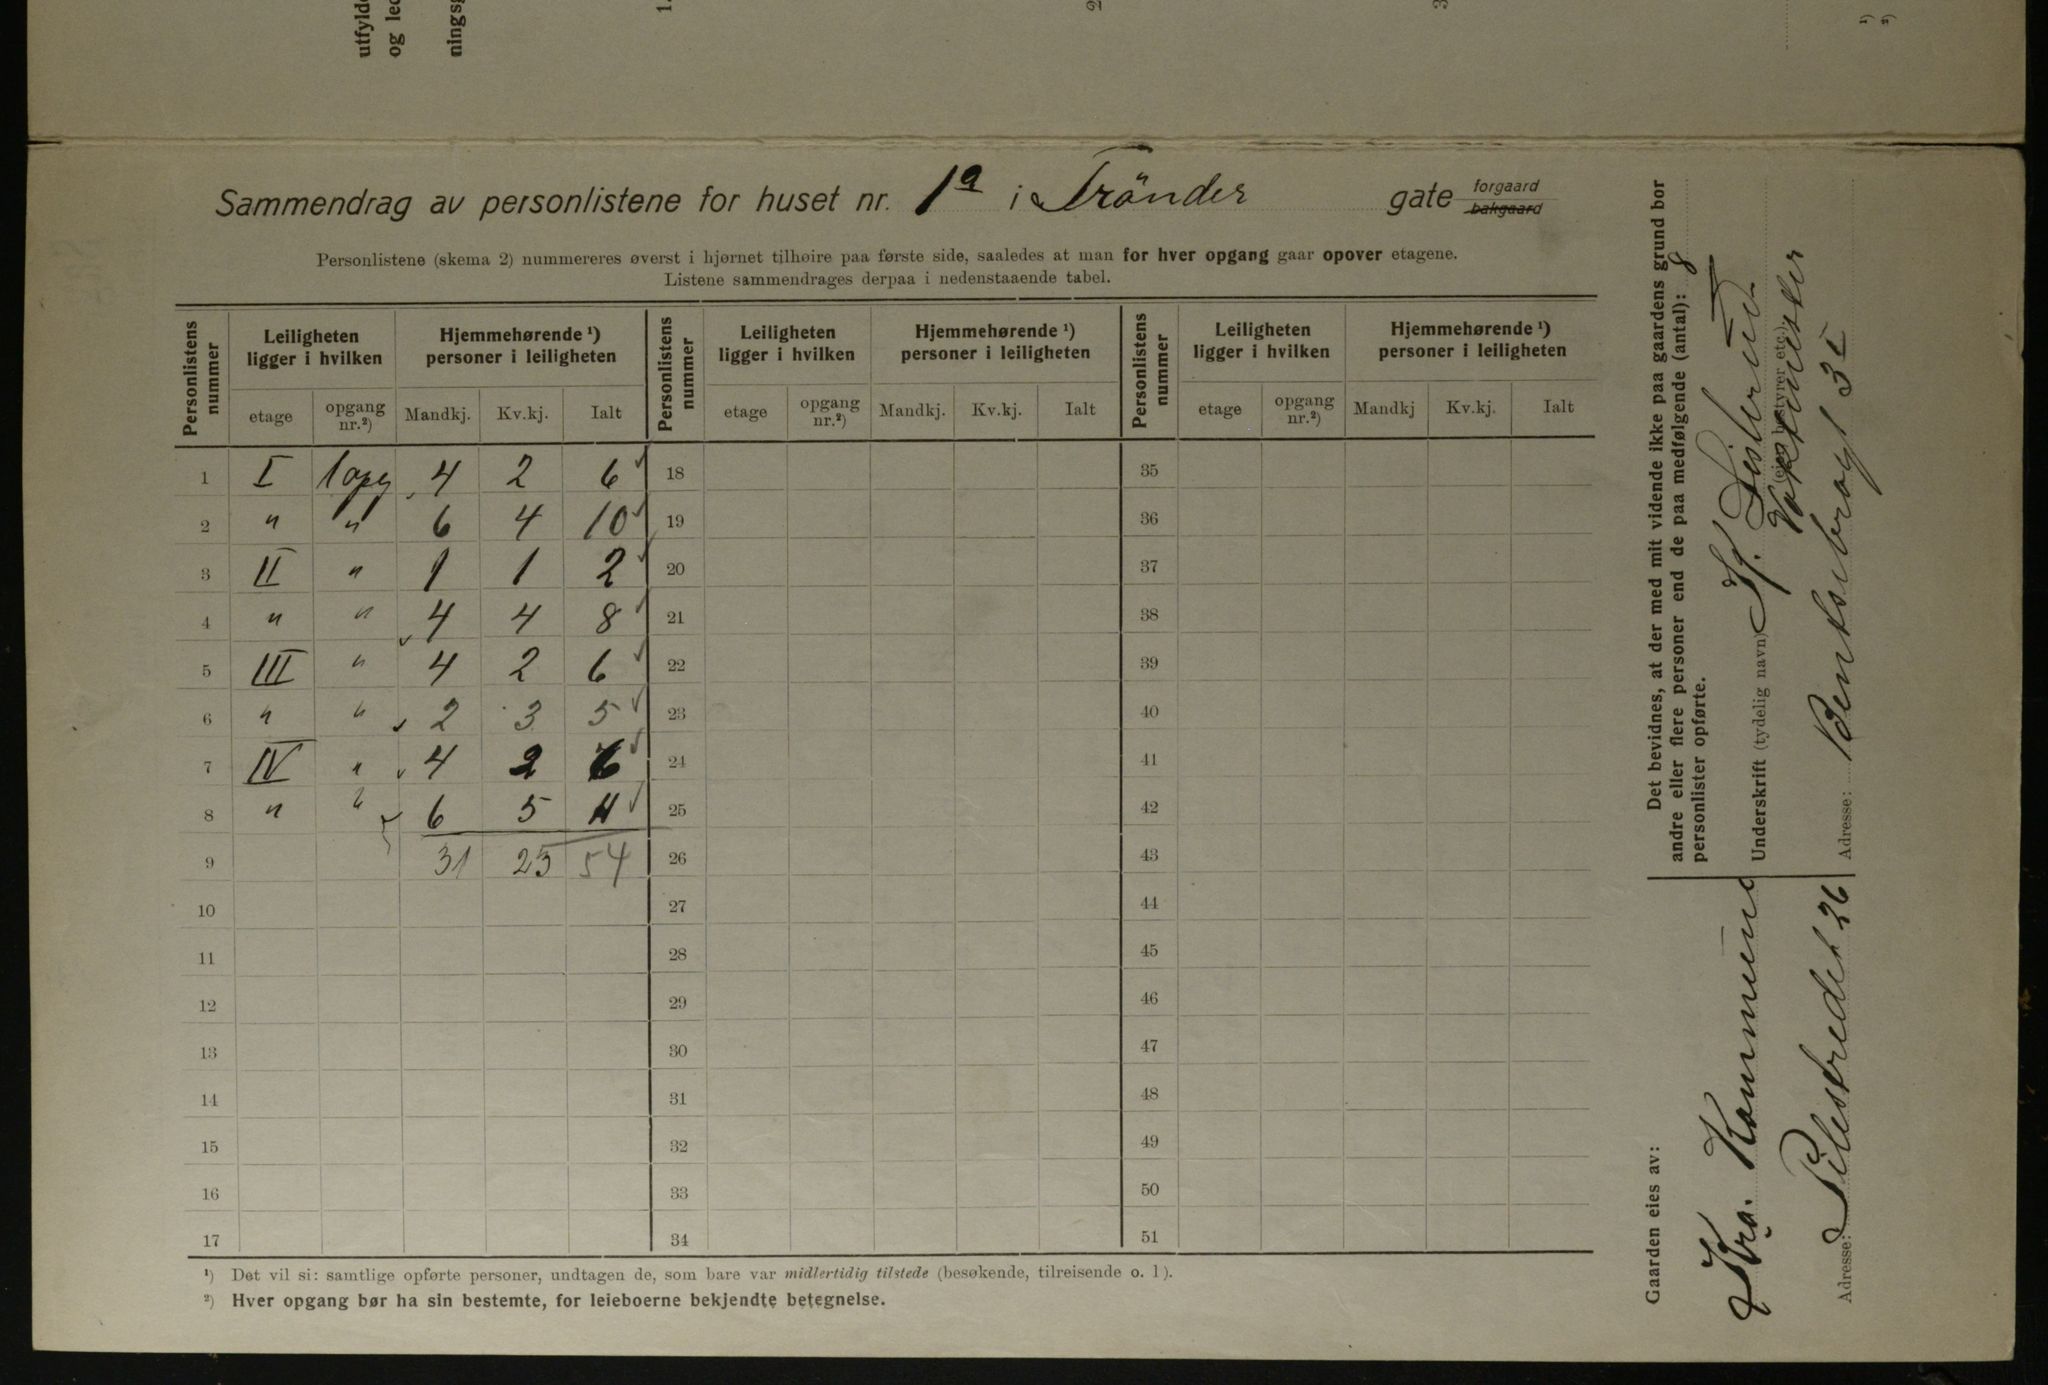 utfylde
og led
ningsg
1.
2
3
¹)
²)
Sammendrag av personlistene for huset nr. 1a i Trönder gate forgaard bakgaard
Personlistene (skema 2) nummereres øverst i hjørnet tilhøire paa første side, saaledes at man for hver opgang gaar opover etagene.
Listene sammendrages derpaa i nedenstaaende tabel.
Personlistens nummer | Leiligheten ligger i hvilken | Hjemmehørende ¹) personer i leiligheten | Personlistens nummer | Leiligheten ligger i hvilken | Hjemmehørende ¹) personer i leiligheten | Personlistens nummer | Leiligheten ligger i hvilken | Hjemmehørende ¹) personer i leiligheten
etage | opgang nr.²) | Mandkj. | Kv.kj. | Ialt | etage | opgang nr.²) | Mandkj. | Kv.kj. | Ialt | etage | opgang nr.²) | Mandkj | Kv.kj. | Ialt
1 | I | 1 opg | 4 | 2 | 6 | 18 | 35
2 | " | " | 6 | 4 | 10 | 19 | 36
3 | II | " | 1 | 1 | 2 | 20 | 37
4 | " | " | 4 | 4 | 8 | 21 | 38
5 | III | " | 4 | 2 | 6 | 22 | 39
6 | " | " | 2 | 3 | 5 | 23 | 40
7 | IV | " | 4 | 2 | 6 | 24 | 41
8 | " | " | 6 | 5 | 11 | 25 | 42
9 | 31 | 23 | 54 | 26 | 43
10 | 27 | 44
11 | 28 | 45
12 | 29 | 46
13 | 30 | 47
14 | 31 | 48
15 | 32 | 49
16 | 33 | 50
17 | 34 | 51
¹) Det vil si: samtlige opførte personer, undtagen de, som bare var midlertidig tilstede (besøkende, tilreisende o. l).
²) Hver opgang bør ha sin bestemte, for leieboerne bekjendte betegnelse.
Det bevidnes, at der med mit vidende ikke paa gaardens grund bor
andre eller flere personer end de paa medfølgende (antal): 8
personlister opførte.
Underskrift (tydelig navn) H.
(eier, bestyrer etc.) Vaktmester
Adresse: Bentsebrogt 3 I
Gaarden eies av:
Kra. Kommune
Adresse: Pilestredet 26